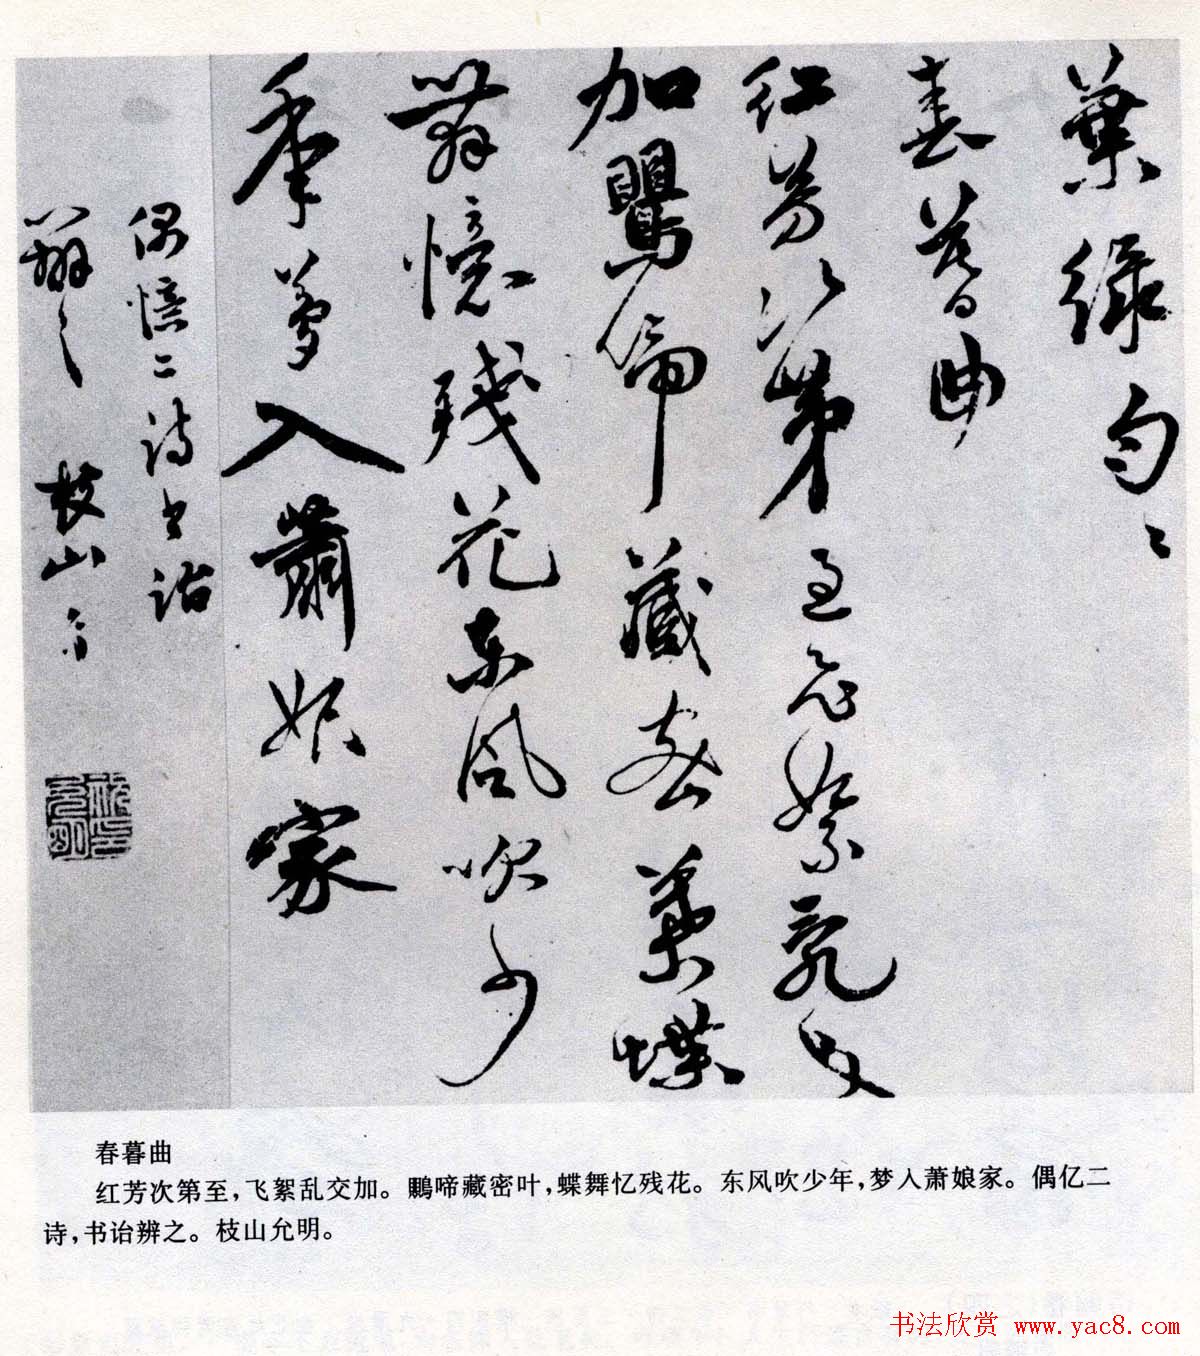 葉綠勻〻
春暮曲
紅芳次第至飛絮亂交
加鸎啼藏密葉蝶
舞憶殘花東風吹少
年夢入蕭娘家
偶憶二詩書詒
辨之 枝山允明
祝允明印
春暮曲
红芳次第至，飞絮乱交加。鸎啼藏密叶，蝶舞忆残花。东风吹少年，梦人萧娘家。偶亿二
诗，书诒辨之。枝山允明。
书法欣赏 www.yac8.com